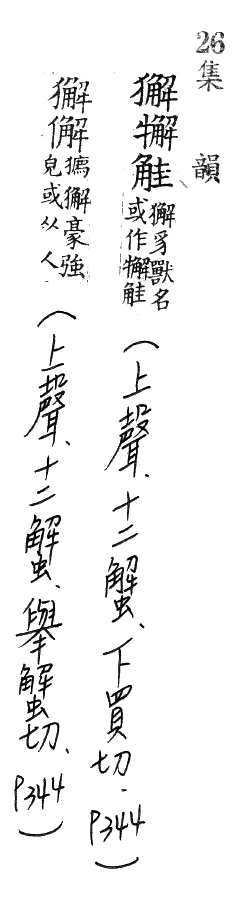 26集韻
獬觟獬豸獸名或作觟(上聲、十二蟹、下買切.P344)
獬獬豪強皃或从人(上聲、十二蟹、舉蟹切、P344)